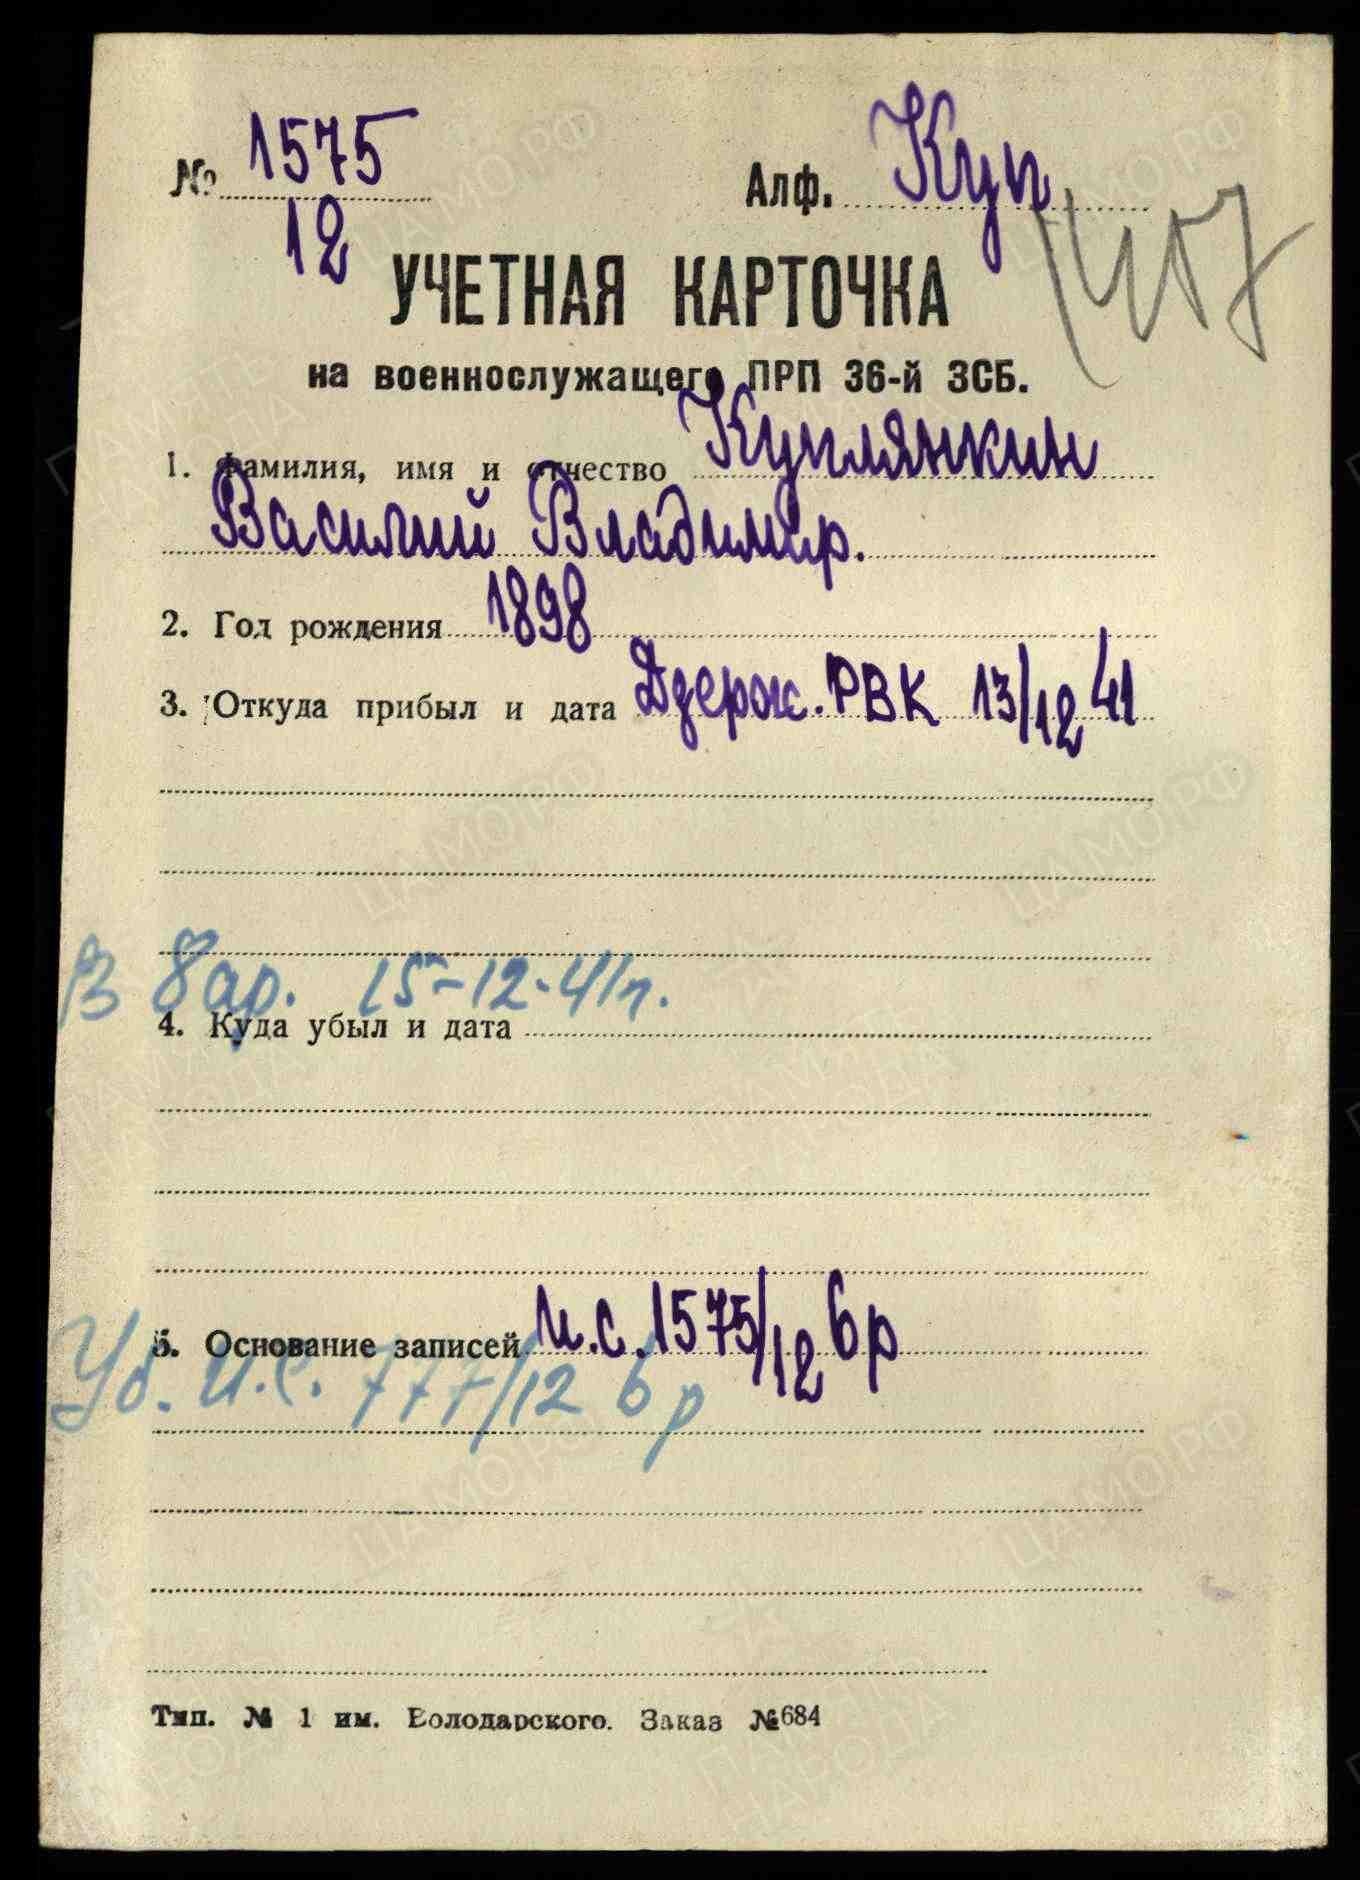 № 1575
12
Алф. Куп
407
УЧЕТНАЯ КАРТОЧКА
на военнослужащего ПРП 36-й ЗСБ.
1. Фамилия, имя и отчество Куплянкин
Василий Владимир.
2. Год рождения 1898
3. Откуда прибыл и дата Дзерж. РВК 13/12 41
В 8 ар. 15-12-41 г.
4. Куда убыл и дата
5. Основание записей И.с. 1575/12 бр
Уб. И.С. 777/12 бр
Тип. № 1 им. Володарского. Заказ №684
ПАМЯТЬ НАРОДА
ЦАМО.РФ